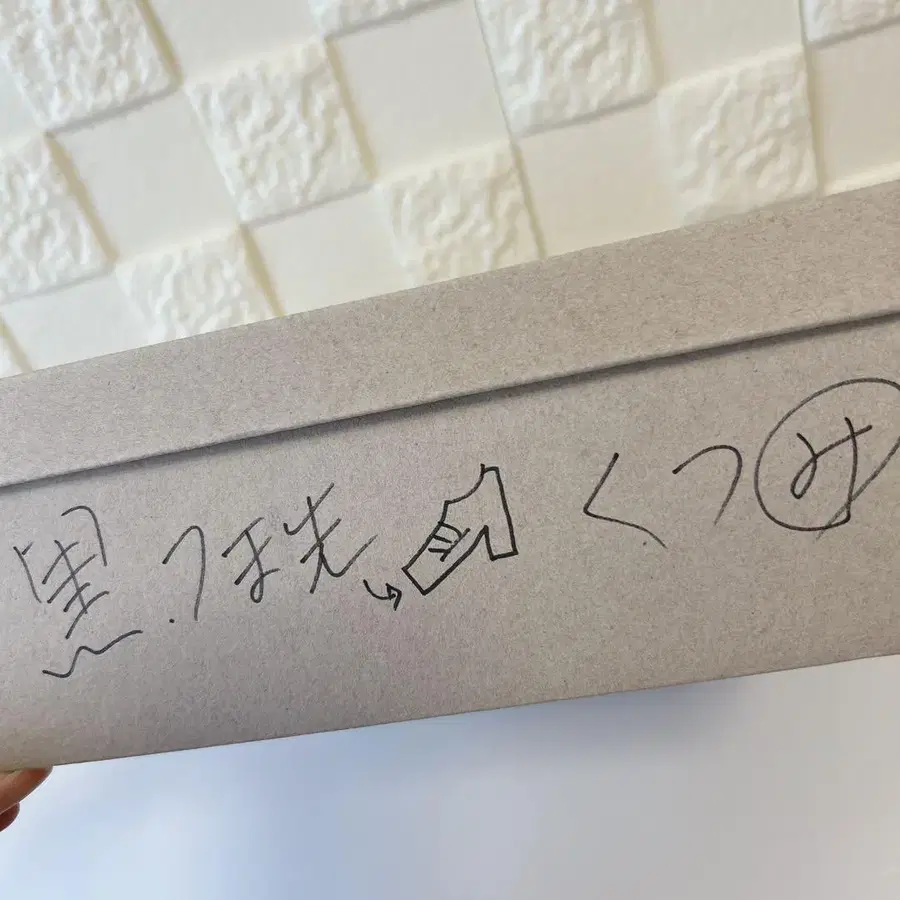 黒.つま先 くつ み